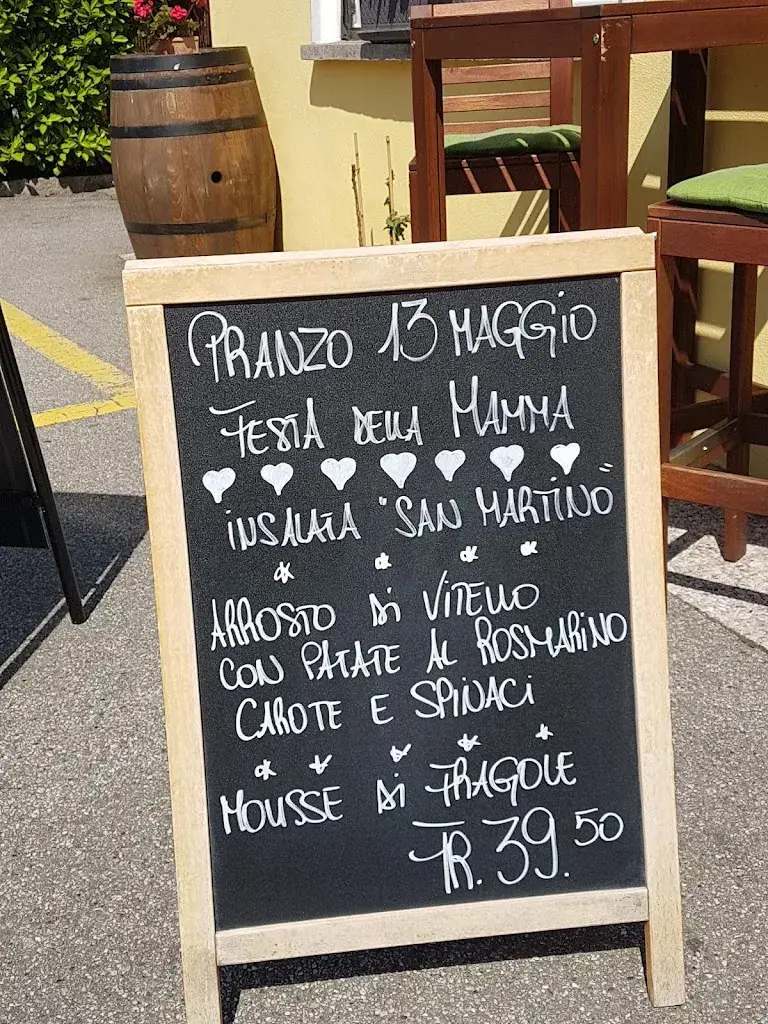 PRANZO 13 MAGGIO
FESTA DELLA MAMMA
INSALATA "SAN MARTINO"
ARROSTO DI VITELLO
CON PATATE AL ROSMARINO
CAROTE E SPINACI
MOUSSE DI FRAGOLE
FR. 39.50